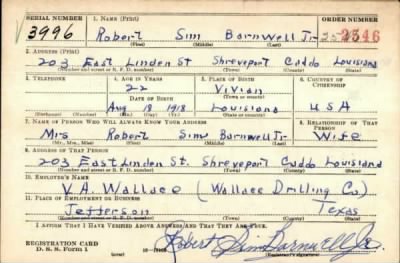 SERIAL NUMBER 1. NAME (Print) ORDER NUMBER
3996 Robert Sim Barnwell Jr 2546
(First) (Middle) (Last)
2. ADDRESS (Print)
203 East Linden St Shreveport Caddo Louisiana
(Number and street or R. F. D. number) (Town) (County) (State)
3. TELEPHONE 4. AGE IN YEARS 5. PLACE OF BIRTH 6. COUNTRY OF CITIZENSHIP
22 Vivian
DATE OF BIRTH (Town or county)
Aug 18 1918 Louisiana USA
(Mo.) (Day) (Yr.) (State or country)
7. NAME OF PERSON WHO WILL ALWAYS KNOW YOUR ADDRESS 8. RELATIONSHIP OF THAT PERSON
Mrs Robert Sim Barnwell Jr Wife
(Mr., Mrs., Miss) (First) (Middle) (Last)
9. ADDRESS OF THAT PERSON
203 East Linden St. Shreveport Caddo Louisiana
(Number and street or R. F. D. number) (Town) (County) (State)
10. EMPLOYER'S NAME
V. A. Wallace (Wallace Drilling Co.)
11. PLACE OF EMPLOYMENT OR BUSINESS
Jefferson Texas
(Number and street or R. F. D. number) (Town) (County) (State)
I AFFIRM THAT I HAVE VERIFIED ABOVE ANSWERS AND THAT THEY ARE TRUE.
REGISTRATION CARD
D. S. S. Form 1 (over) Robert Sim Barnwell Jr.
(Registrant's signature)